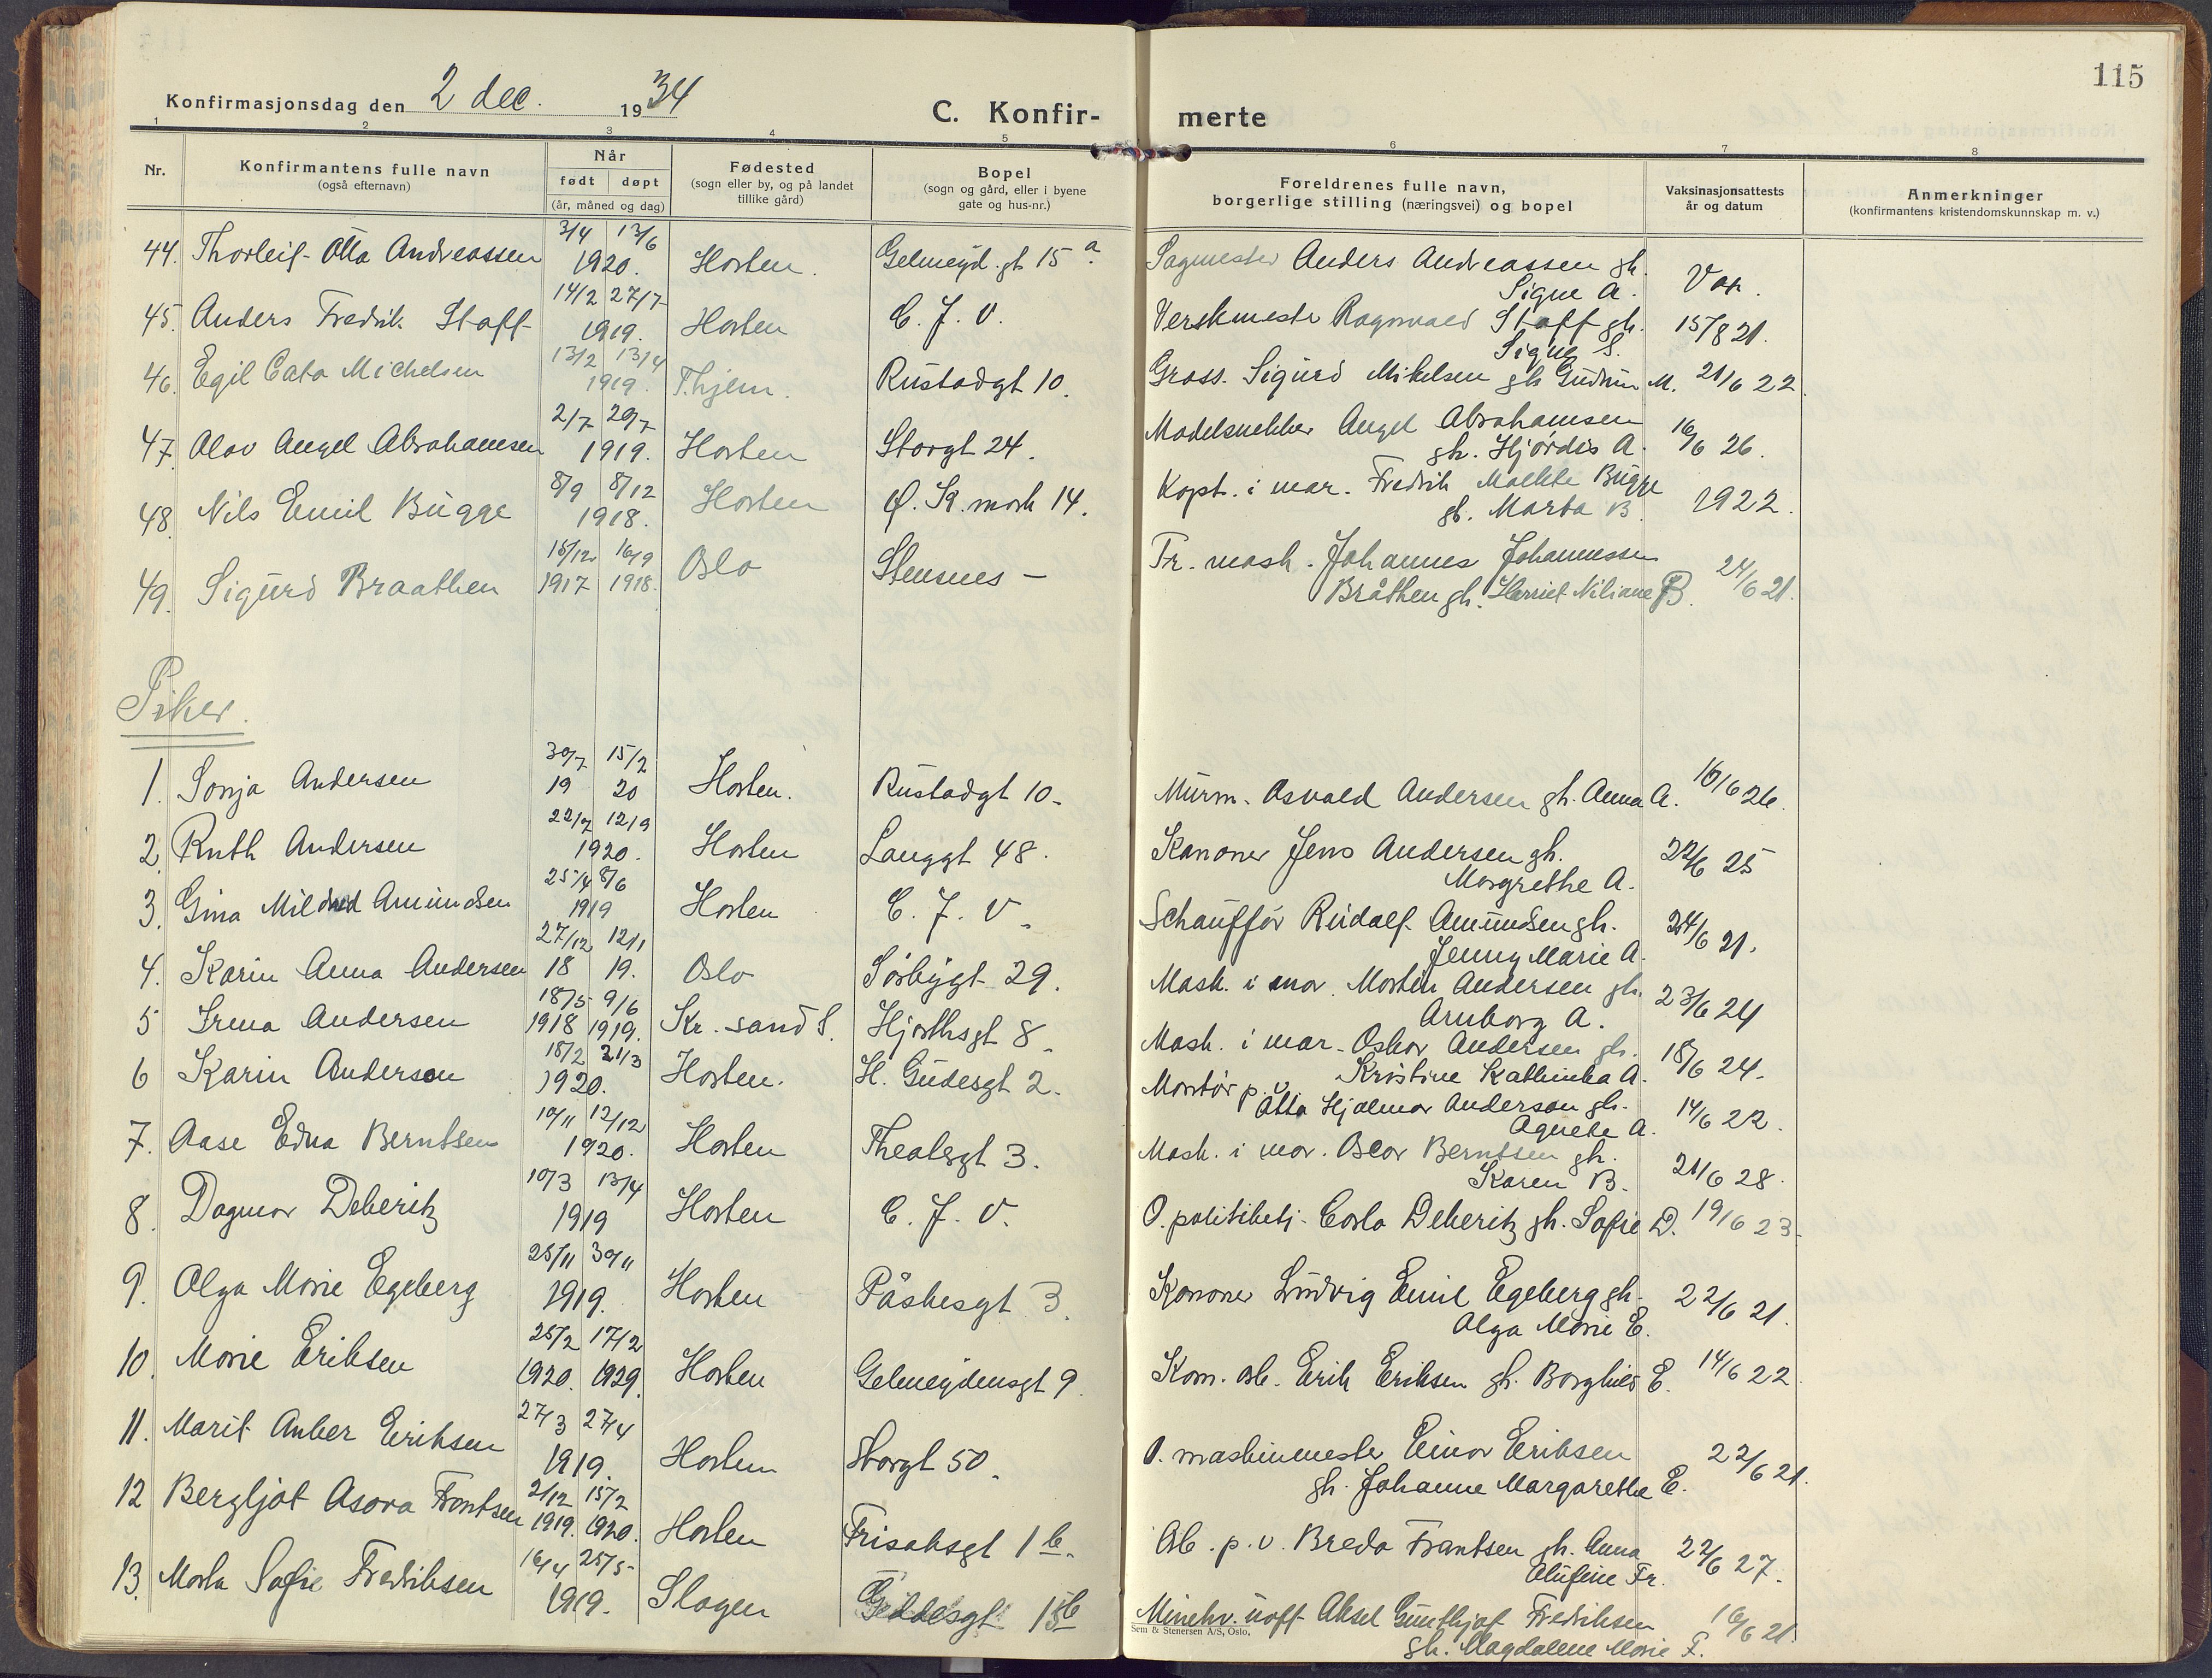 115
Konfirmasjonsdag den 2 dec. 1934
C. Konfir- merte
1 2 3 4 5 6 7 8
Nr.
Konfirmantens fulle navn
(også efternavn)
Når
født døpt
(år, måned og dag)
Fødested
(sogn eller by, og på landet
tillike gård)
Bopel
(sogn og gård, eller i byene
gate og hus-nr.)
Foreldrenes fulle navn,
borgerlige stilling (næringsvei) og bopel
Vaksinasjonsattests
år og datum
Anmerkninger
(konfirmantens kristendomskunnskap m. v.)
44. Thorleif Otto Andreassen 3/4 13/6 1920. Horten. Gelmeyd. gt 15 a. Sagmester Anders Andreassen gh.
Signe A.
45. Anders Fredrik Staff 14/2 27/7 1919. Horten C. J. V. Verksmester Ragnvald Staff gh. 15/8 21.
Signe S.
46. Egil Cato Michelsen 13/2 13/4 1919. T.hjem. Rustadgt 10. Gross. Sigurd Mikelsen gh Gudrun M. 21/6 22
47. Olav Angel Abrahamsen 2/7 29/7 1919. Horten Storgt 24. Modelsnekker Angel Abrahamsen 16/6 26.
gh. Hjørdis A.
48. Nils Emil Bugge 8/9 8/12 1918. Horten Ø. K. mark 14. Kapt. i mar. Fredrik Moltke Bugge 1922.
gh. Marta B.
49. Sigurd Braathen 15/12 1917 16/9 1918. Oslo Stensnes - Fr. mask. Johannes Johannessen 24/6 21.
Bråthen gh. Harriet Niliane B.
Piker.
1. Sonja Andersen 30/7 19 15/2 20 Horten. Rustadgt 10. Murm. Osvald Andersen gh. Anna A. 16/6 26.
2. Ruth Andersen 22/7 12/9 1920. Horten Langgt 48. Kanoner Jens Andersen gh. 22/6 25
Margrethe A.
3. Gina Mildred Amundsen 25/4 8/6 1919 Horten C. J. V. Schaufför Rudolf Amundsen gh. 24/6 21.
Jenny Marie A.
4. Karin Anna Andersen 27/12 18 12/1 19. Oslo Sørbygt 29. Mask. i mar. Morten Andersen gh. 23/6 24
Arnborg A.
5 Irma Andersen 18/5 1918 9/6 1919. Kr. sand S. Hjorthsgt 8. Mask. i mar. Oskar Andersen gh. 18/6 24.
Kristine Kathinka A.
6 Karin Anderson 18/2 21/3 1920. Horten. H. Gudesgt 2. Montør p. v. Otto Hjalmar Anderson gh. 14/6 22.
Agnete A.
7. Aase Edna Berntsen 10/11 12/12 1920. Horten Theatergt 3. Mask. i mar. Oscar Berntsen gh. 21/6 28.
Karen B.
8. Dagmar Deberitz 10/3 13/4 1919 Horten C. J. V. O. politibetj. Carlo Deberitz gh. Sofie D. 19/6 23.
9. Olga Marie Egeberg 25/11 30/11 1919. Horten Påskesgt 3. Kanoner Ludvig Emil Egeberg gh. 22/6 21.
Olga Marie E.
10. Marie Eriksen 25/2 1920. 17/2 1929. Horten Gelmeydensgt 9. Kom. arb. Erik Eriksen gh. Borghild E. 14/6 22
11. Marit Anker Eriksen 27/3 27/4 1919 Horten Storgt 50. O. maskinmester Einar Eriksen 22/6 21.
gh. Johanne Margarethe E.
12 Bergljot Asora Frantsen 2/12 1919. 15/2 1920. Horten Frisaksgt 1 b. Arb. p. v. Breda Frantsen gh. Anna 22/6 27.
Olufine Fr.
13. Marta Sofie Fredriksen 16/4 25/5 1919. Slagen Geddesgt 15b Minekv. uoff. Aksel Fredriksen 16/6 21.
gh. Magdalene Marie F.
Sem & Stenersen A/S, Oslo.